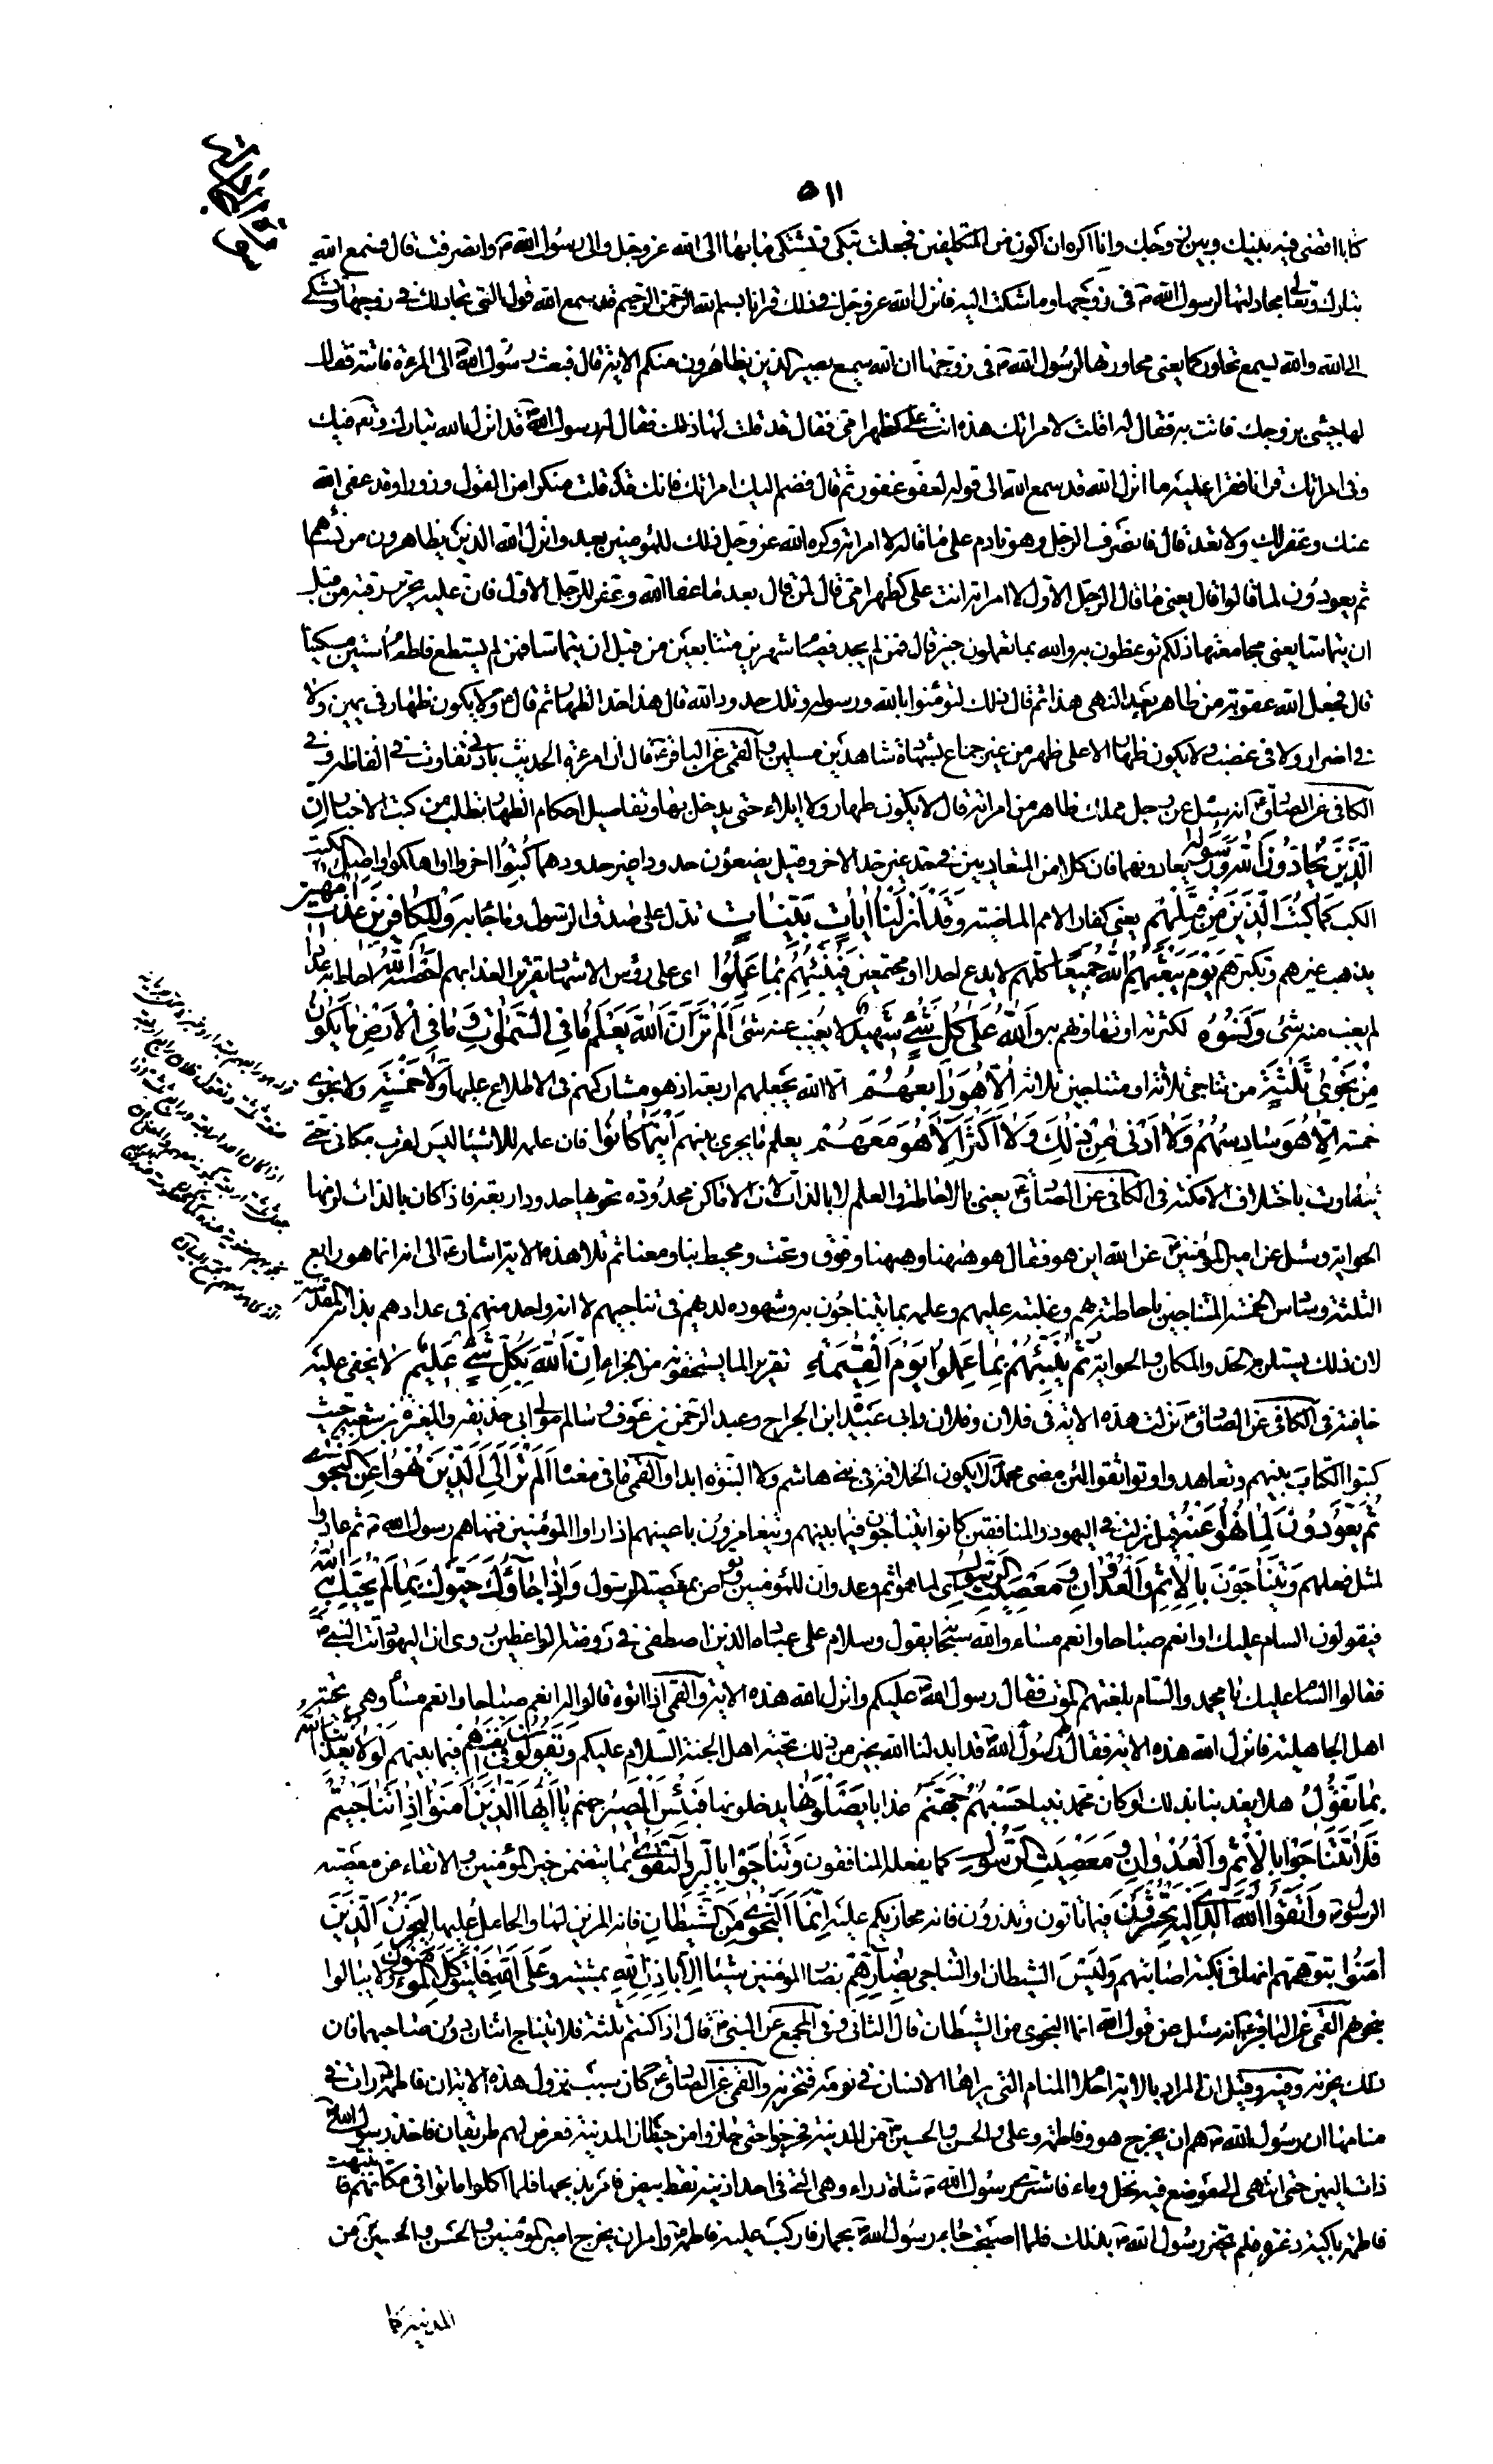 ٥١١
كتابا اقضى فيه بينك وبين زوجك وانا اكره ان اكون من المتكلفين فجعلت تبكى وتشتكى ما بها الى الله عز وجل والى رسول الله ص وانصرفت قال فسمع الله
تبارك وتعالى مجادلتها لرسول الله ص فى زوجها وما شكت اليه فانزل الله عز وجل فى ذلك قرانا بسم الله الرحمن الرحيم قد سمع الله قول التى تجادلك فى زوجها وتشتكى
الى الله والله يسمع تحاوركما يعنى محاورتها لرسول الله ص فى زوجها ان الله سميع بصير الذين يظاهرون منكم الاية قال فبعث رسول الله ص الى المرءة فاتته فقال
لها جيئى بزوجك فاتت به فقال له اقلت لامراتك هذه انت على كظهر امى فقال قد قلت لها ذلك فقال له رسول الله ص قد انزل الله تبارك وتع فيك
وفى امراتك قرانا فقرا عليه ما انزل الله قد سمع الله الى قوله لعفو غفور ثم قال فضم اليك امراتك فانك قد قلت منكرا من القول وزورا وقد عفى الله
عنك وغفر لك ولا تعد قال فانصرف الرجل وهو نادم على ما قال لامراته وكره الله عز وجل ذلك للمؤمنين بعد وانزل الله الذين يظاهرون من نسائهم
ثم يعودون لما قالوا قال يعنى ما قال الرجل الاول لامراته انت على كظهر امى قال لمن قال بعد ما عفا الله وغفر للرجل الاول فان عليه تحرير رقبة من قبل
ان يتماسا يعنى مجامعتها ذلكم توعظون به والله بما تعملون خبير قال فمن لم يجد فصيام شهرين متتابعين من قبل ان يتماسا فمن لم يستطع فاطعام ستين مسكينا
قال فجعل الله عقوبة من ظاهر بعد النهى هذا ثم قال ذلك لتؤمنوا بالله ورسوله وتلك حدود الله قال هذا حد الظهار ثم قال ع ولا يكون ظهار فى يمين ولا
فى اضرار ولا فى غضب ولا يكون ظهار الا على طهر من غير جماع بشهادة شاهدين مسلمين والقمى عن الباقر ع قال ان امرءة الحديث بادنى تفاوت فى الفاظه وفى
الكافى عن الصادق ع انه سئل عن رجل مملك ظاهر من امراته قال لا يكون ظهار ولا ايلاء حتى يدخل بها وتفاصيل احكام الظهار تطلب من كتب الاخبار ان
الذين يحادون الله ورسوله يعادونهما فان كلا من المتعاديين فى حد غير حد الاخر وقيل يضعون حدودا غير حدودهما كبتوا اخزوا او اهلكوا واصل الكبت
الكب كما كبت الذين من قبلهم يعنى كفار الامم الماضية وقد انزلنا ايات بينات تدل على صدق الرسول وما جاء به وللكافرين عذاب مهين
يذهب عزهم وتكبرهم يوم يبعثهم الله جميعا كلهم لا يدع احدا او مجتمعين فينبئهم بما عملوا اى على رؤس الاشهاد تقريرا لعذابهم احصيه الله احاط به عددا
لم يغب منه شئ ونسوه لكثرته او تهاونهم به والله على كل شئ شهيد لا يغيب عنه شئ الم تر ان الله يعلم ما فى السموات وما فى الارض ما يكون
من نجوى ثلثة من تناجى ثلاثة او متناجين ثلاثة الا هو رابعهم الا الله يجعلهم اربعة اذ هو مشاركهم فى الاطلاع عليها ولا خمسة ولا نجوى
خمسة الا هو سادسهم ولا ادنى من ذلك ولا اكثر الا هو معهم يعلم ما يجرى بينهم اينما كانوا فان علمه للاشياء ليس لقرب مكانى حتى
يتفاوت باختلاف الامكنة فى الكافى عن الصادق ع يعنى بالاحاطة والعلم لا بالذات لان الاماكن محدودة تحويها حدود اربعة فاذا كان بالذات لزمها
الحواية وسئل عن امير المؤمنين ع عن الله اين هو فقال هو ههنا وههنا وفوق وتحت ومحيط بنا ومعنا ثم تلا هذه الاية اشارة الى انه انما هو رابع
الثلثة وسادس الخمسة المتناجين باحاطته بهم وغلبته عليهم وعلمه بما يتناجون به وشهوده لديهم فى تناجيهم لا انه واحد منهم فى عدادهم بذاته المقدسة
لان ذلك يستلزم الحد والمكان والحواية ثم ينبئهم بما عملوا يوم القيمة تقريرا لما يستحقونه من الجزاء ان الله بكل شئ عليم لا يخفى عليه
خافية فى الكافى عن الصادق ع نزلت هذه الاية فى فلان وفلان وابى عبيدة ابن الجراح وعبد الرحمن بن عوف وسالم مولى ابى حذيفة والمغيرة بن شعبة حيث
كتبوا الكتاب بينهم وتعاهدوا وتواثقوا لئن مضى محمد ص لا يكون الخلافة فى بنى هاشم ولا النبوة ابدا والقمى ما فى معناه الم تر الى الذين نهوا عن النجوى
ثم يعودون لما نهوا عنه قيل نزلت فى اليهود والمنافقين كانوا يتناجون فيما بينهم ويتغامزون باعينهم اذا راوا المؤمنين فنهاهم رسول الله ص ثم عادوا
لمثل فعلهم ويتناجون بالاثم والعدوان ومعصيت الرسول اى بما هو اثم وعدوان للمؤمنين وتواص بمعصية الرسول واذا جاؤك حيوك بما لم يحيك به الله
فيقولون السام عليك او انعم صباحا وانعم مساء والله سبحانه يقول وسلام على عباده الذين اصطفى فى روضة الواعظين روى ان اليهود اتت النبى ص
فقالوا السام عليك يا محمد والسام بلغتهم الموت فقال رسول الله ص عليكم وانزل الله هذه الاية والقمى اذا اتوه قالوا له انعم صباحا وانعم مساء وهى تحية
اهل الجاهلية فانزل الله هذه الاية فقال لهم رسول الله ص قد ابدلنا الله بخير من ذلك تحية اهل الجنة السلام عليكم ويقولون فى انفسهم فيما بينهم لولا يعذبنا الله
بما نقول هلا يعذبنا بذلك لو كان محمد نبيا حسبهم جهنم عذابا يصلونها يدخلونها فبئس المصير جهنم يا ايها الذين امنوا اذا تناجيتم
فلا تتناجوا بالاثم والعدوان ومعصيت الرسول كما يفعله المنافقون وتناجوا بالبر والتقوى بما يتضمن خير المؤمنين والاتقاء عن معصية
الرسول ص واتقوا الله الذى اليه تحشرون فيما تاتون وتذرون فانه مجازيكم عليه انما النجوى من الشيطان فانه المزين لها والحامل عليها ليحزن الذين
امنوا بتوهمهم انها فى نكبة اصابتهم وليس الشيطان والتناجى بضارهم بضار المؤمنين شيئا الا باذن الله بمشيته وعلى الله فليتوكل المؤمنون ولا يبالوا
بنجواهم القمى عن الباقر ع انه سئل عن قول الله انما النجوى من الشيطان قال الثانى وفى المجمع عن النبى ص قال اذا كنتم ثلثة فلا يتناج اثنان دون صاحبهما فان
ذلك يحزنه وفيه وقيل ان المراد بالاية احلام المنام التى يراها الانسان فى نومه فتحزنه والقمى عن الصادق ع كان سبب نزول هذه الاية ان فاطمة ع رات فى
منامها ان رسول الله ص هم ان يخرج هو وفاطمة وعلى والحسن والحسين ع من المدينة فخرجوا حتى جازوا من حيطان المدينة فعرض لهم طريقان فاخذ رسول الله ص
ذات اليمين حتى انتهى الى موضع فيه نخل وماء فاشترى رسول الله ص شاة ذراء وهى التى فى احد اذنيه نقط بيض فامر بذبحها فلما اكلوا ماتوا فى مكانهم فانتبهت
فاطمة باكية ذعرة فلم تخبر رسول الله ص بذلك فلما اصبحت جاء رسول الله ص بحمار فاركب عليه فاطمة ع وامر ان يخرج امير المؤمنين والحسن والحسين ع من
المدينة كما